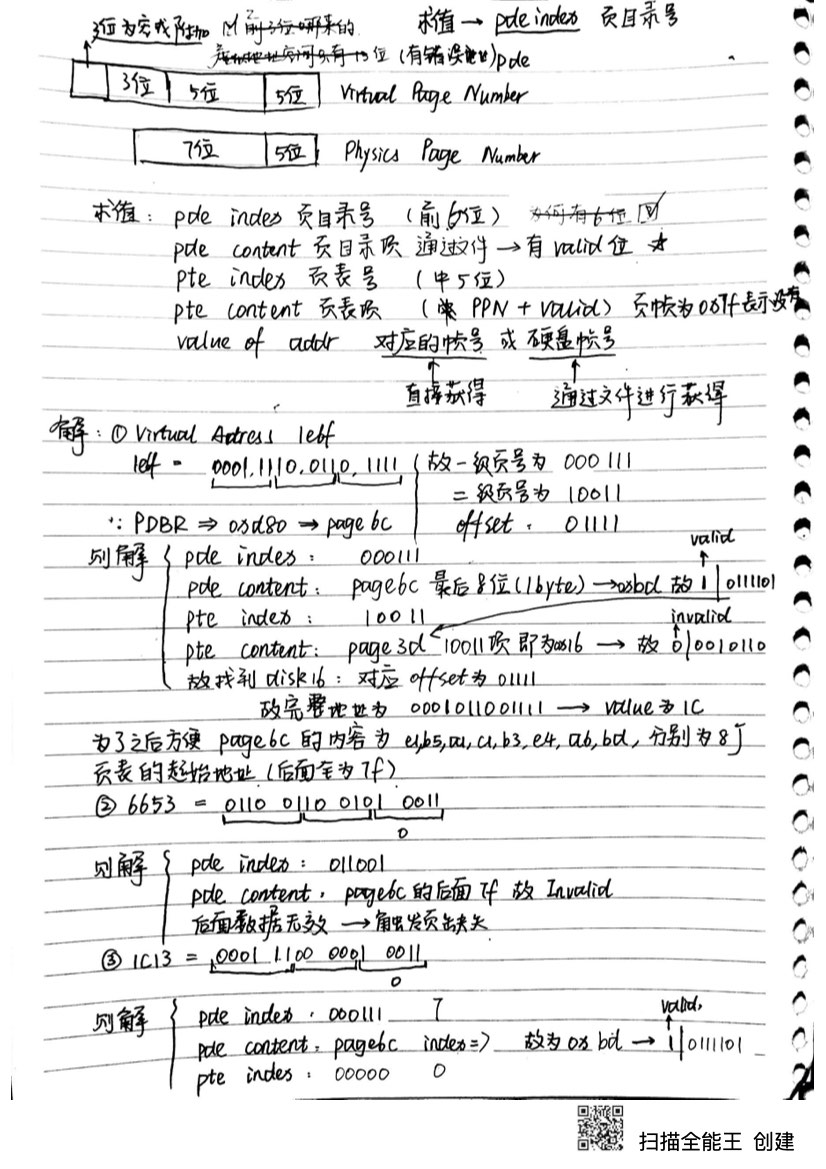 3位为完成附加 M前3位哪来的 求值 → pde index 页目录号
虚拟地址空间只有13位 (有错误地址) pde
3位 5位 5位 Virtual Page Number
7位 5位 Physics Page Number
求值: pde index 页目录号 (前6位) 为何有6位
pde content 页目录项 通过文件 → 有valid位 ☆
pte index 页表号 (中5位)
pte content 页表项 (PPN + valid) 页帧为0x7f表示没有
value of addr 对应的帧号 或 硬盘帧号
直接获得 通过文件进行获得
解: ① Virtual Adress 1ebf
1ebf = 0001,1110,0110,1111 故一级页号为 000111
二级页号为 10011
∵ PDBR ⇒ 0xd80 → page6c offset: 01111
则解 pde index: 000111 valid
pde content: page6c 最后8位(1byte) → 0xbd 故 1|0111101
pte index: 10011 invalid
pte content: page3d 10011项 即为0x16 → 故 0|0010110
故找到disk16: 对应offset为 01111
故完整地址为 0001011001111 → value为1C
为了之后方便 page6c的内容为 e1,b5,a1,c1,b3,e4,a6,bd, 分别为8个
页表的起始地址 (后面全为7f)
② 6653 = 0110 0110 0101 0011
0
则解 pde index: 011001
pde content: page6c的后面 7f 故 Invalid
后面数据无效 → 触发页缺失
③ 1C13 = 0001 1100 0001 0011
0
则解 pde index: 000111 7 valid
pde content: page6c index=7 故为0x bd → 1|0111101
pte index: 00000 0
扫描全能王 创建